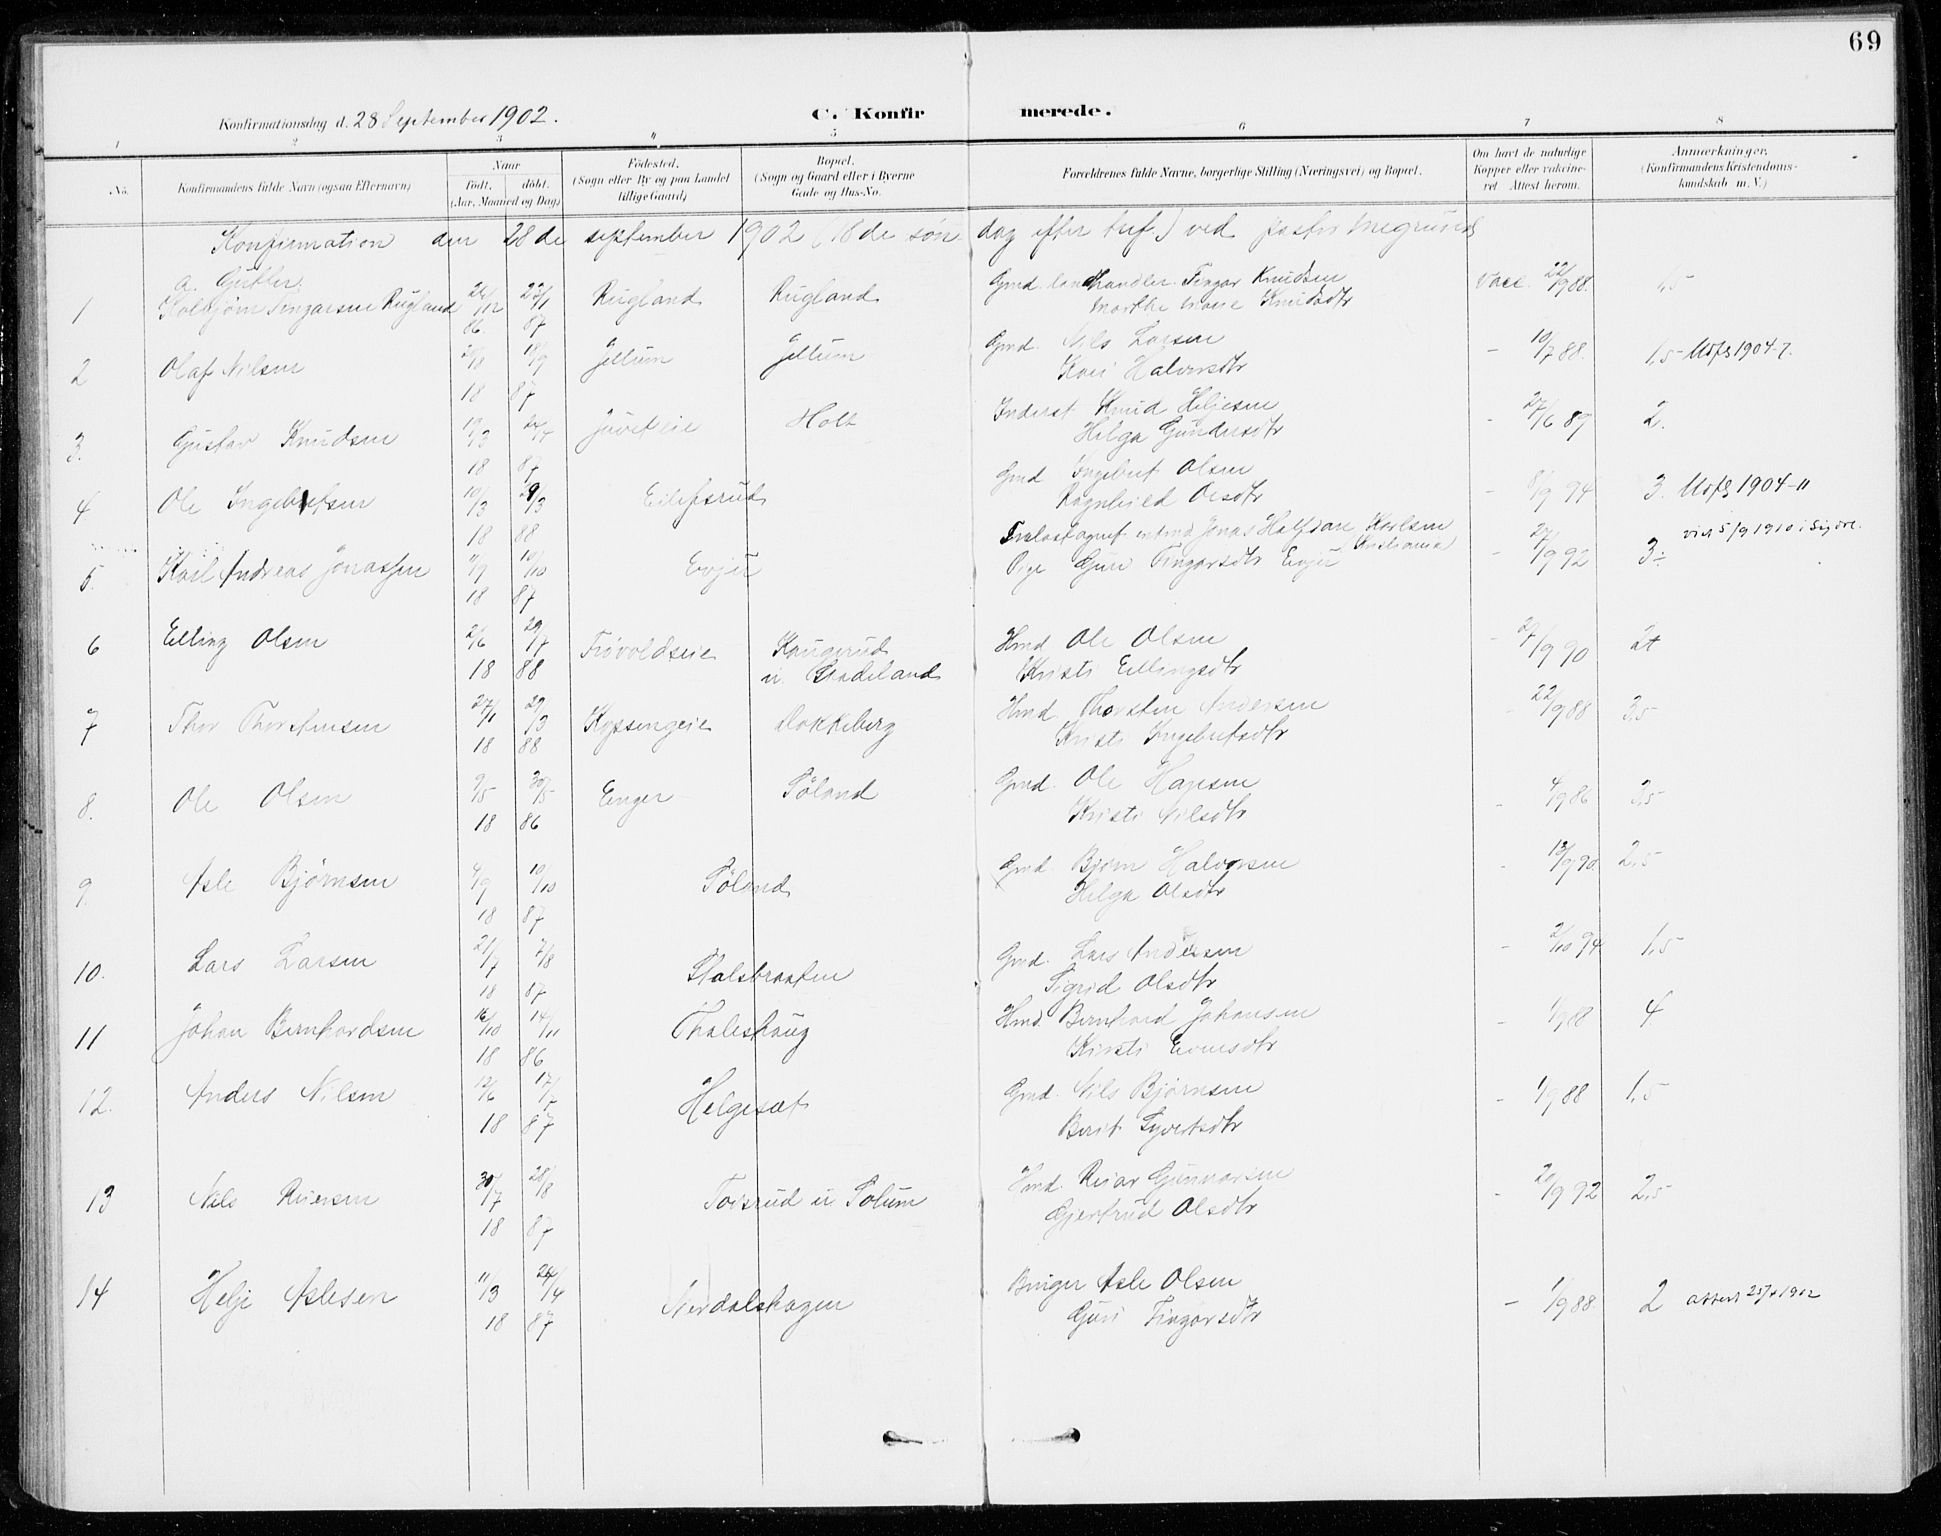 69
Konfirmationsdag d. 28 September 1902.
C. Konfirmerede.
1 2 3 4 5 6 7 8
No.
Konfirmandens fulde Navn (ogsaa Efternavn)
Naar
født. døbt.
(Aar, Maaned og Dag)
Fødested.
(Sogn eller By og paa Landet
tillige Gaard)
Bopæl.
(Sogn og Gaard eller i Byerne
Gade og Hus-No.
Forældrenes fulde Navne, borgerlige Stilling (Næringsvei) og Bopæl.
Om havt de naturlige
Kopper eller vakcine-
ret Attest herom.
Anmærkninger.
(Konfirmandens Kristendoms-
kundskab m. V.)
Konfirmation den 28de september 1902 (18de søndag efter tref.) ved
a. Gutter.
1 Kolbjørn Fingarsen Rugland 86 87 Rugland Rugland Gmd. landhandler Fingar Knudsen vacc. 22/9 88. 1,5
Marthe Marie Knudsdtr
2 Olaf Nilsen 18/9 18 87 Jellum Jellum Gmd. Nils Larsen - 10/7 88. 1,5 Utfl 1904-7.
Kari Halvorsdtr
3. Gustav Knudsen 18 87 Juveteie Holt Inderst Knud Heljesen - 27/6 87 2.
Helga Gundersdtr
4 Ole Ingebretsen 10/3 29/3 18 88 Eilefsrud Gmd Ingebret Olsen - 8/9 94 3. Utfl 1904-11
Ragnhild Olsdtr
5. Karl Andreas Jonassen 11/9 10/10 18 87 Evju Jonas Halfdan Karlsen Kristiania - 27/9 92 3÷ viet 5/9 1910 i Sigdal
Pige Guri Fingarsdtr Evju
6 Elling Olsen 2/6 29/7 18 88 Frøvoldseie Kaugerud Hmd Ole Olsen - 29/9 90 2+
u. Gradeland Kristi Ellingsdtr
7 Thor Thorstensen 27/1 29/3 18 88 Kyssengeie Hokkeberg Hmd. Thorsten Andersen - 22/9 88 3,5
Kristi Ingebretsdtr
8. Ole Olsen 9/5 30/5 18 86 Enger Søland Gmd. Ole Hansen - 4/9 86 3,5
Kristi Nilsdtr
9. Asle Bjørnsen 4/9 10/10 18 87 Søland Gmd. Bjørn Halvorsen - 13/9 90. 2,5
Helga Olsdtr
10. Lars Larsen 21/7 7/8 18 87 Stalsbraaten Gmd. Lars Andersen - 2/10 94 1,5
Sigrid Olsdtr
11 Johan Bernhardsen 16/10 14/11 18 86 Thaleshaug Hmd. Bernhard Johansen - 1/9 88 4.
Kirsti Evensdtr
12. Anders Nilsen 12/6 17/7 18 87 Helgeset Gmd. Nils Bjørnsen - 1/9 88 1,5
Berit Syvertsdtr
13 Nils Reiersen 30/7 28/8 18 87 Toisrud u. Solum Hmd. Reiar Gunnarsen - 20/9 92 2,5
Gjertrud Olsdtr
14 Helje Aslesen 11/3 24/4 18 87 Nerdalshagen Bruger Asle Olsen - 1/9 88. 2 attest 1902
Guri Fingarsdtr